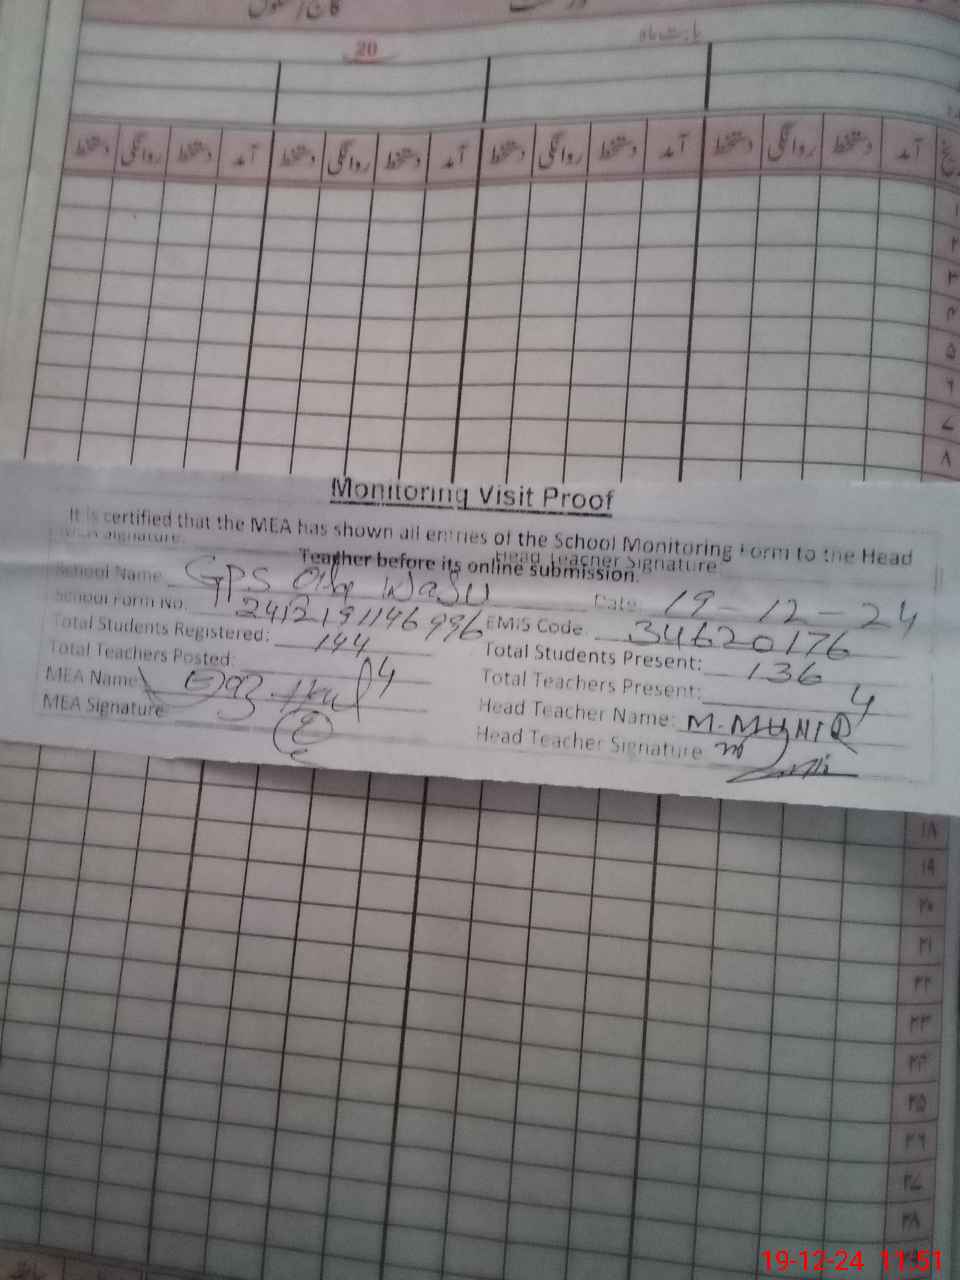 20
بابت ماہ
دستخط روانگی دستخط آمد دستخط روانگی دستخط آمد دستخط روانگی دستخط آمد دستخط روانگی دستخط آمد
۱
۲
۳
۴
۵
۶
۷
۸
Monitoring Visit Proof
It is certified that the MEA has shown all entries of the School Monitoring Form to the Head
Teacher before its online submission.
Head Teacher Signature
School Name GPS Wasu Date 19-12-24
School Form No. 2412191146996 EMIS Code 34620176
Total Students Registered: 144 Total Students Present: 136
Total Teachers Posted: 4 Total Teachers Present: 4
MEA Name Head Teacher Name: M. MUNIR
MEA Signature Head Teacher Signature
۱۸
۱۹
۲۰
۲۱
۲۲
۲۳
۲۴
۲۵
۲۶
۲۷
۲۸
19-12-24 11:51